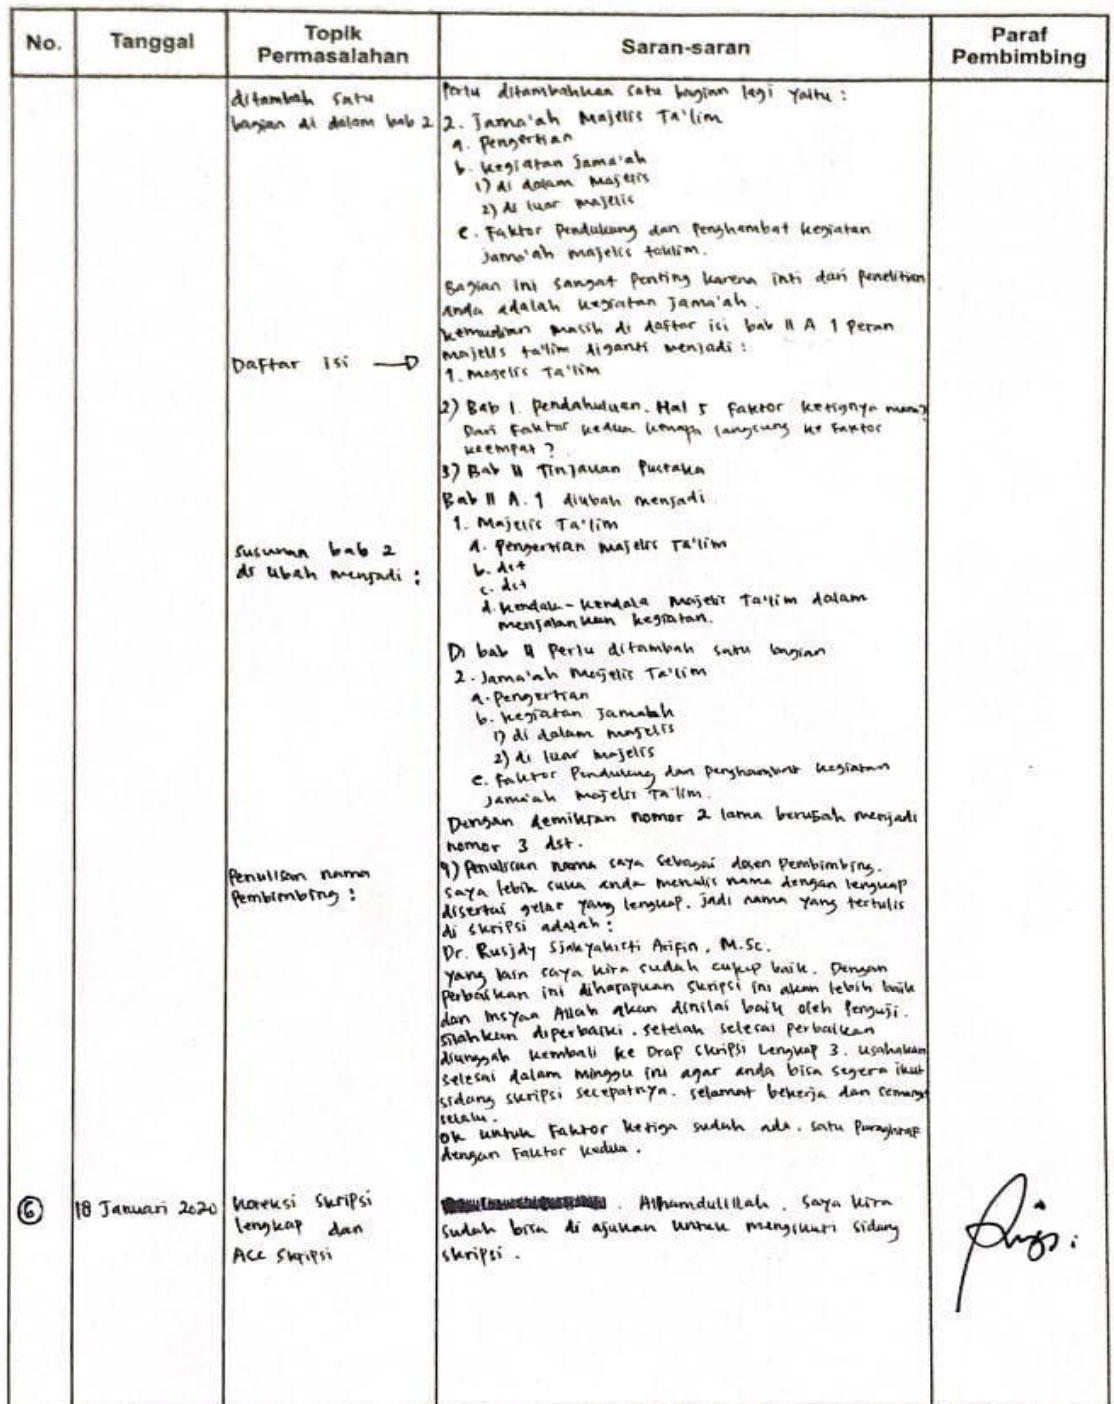 No.
Tanggal
Topik
Permasalahan
Saran-saran
Paraf
Pembimbing
ditambah satu
bagian di dalam bab 2
Perlu ditambahkan satu bagian lagi yaitu :
2. Jama'ah Majelis Ta'lim
a. Pengertian
b. kegiatan Jama'ah
1) di dalam Majelis
2) di luar majelis
c. Faktor Pendukung dan Penghambat kegiatan
Jama'ah majelis taklim.
Bagian ini sangat Penting karena inti dari penelitian
anda adalah kegiatan Jama'ah.
kemudian masih di daftar isi bab II A 1 Peran
majelis ta'lim diganti menjadi :
Daftar isi
1. Majelis Ta'lim
2) Bab 1. Pendahuluan. Hal 5 Faktor ketiganya mana?
Dari Faktor kedua kenapa langsung ke Faktor
keempat ?
3) Bab II Tinjauan Pustaka
Bab II A. 1 diubah menjadi
1. Majelis Ta'lim
susunan bab 2
di ubah menjadi :
a. Pengertian majelis Ta'lim
b. dst
c. dst
d. kendala-kendala Majelis Ta'lim dalam
menjalankan kegiatan.
Di bab II Perlu ditambah satu bagian
2. Jama'ah Majelis Ta'lim
a. Pengertian
b. kegiatan Jamaah
1) di dalam majelis
2) di luar majelis
c. Faktor Pendukung dan penghambat kegiatan
Jama'ah Majelis Ta'lim.
Dengan demikian nomor 2 lama berubah menjadi
nomor 3 dst.
Penulisan nama
Pembimbing :
4) Penulisan nama saya sebagai dosen Pembimbing.
saya lebih suka anda menulis nama dengan lengkap
disertai gelar yang lengkap. Jadi nama yang tertulis
di skripsi adalah :
Dr. Rusjdy Sjakyakirti Arifin, M.Sc.
yang lain saya kira sudah cukup baik. Dengan
perbaikan ini diharapkan skripsi ini akan lebih baik
dan Insyaa Allah akan dinilai baik oleh Penguji.
silahkan diperbaiki. setelah selesai perbaikan
diunggah kembali ke Draf Skripsi Lengkap 3. usahakan
selesai dalam minggu ini agar anda bisa segera ikut
sidang skripsi secepatnya. selamat bekerja dan semangat
selalu.
Ok untuk Faktor ketiga sudah ada. satu Paraghraf
dengan Faktor kedua.
6
18 Januari 2020
Koreksi Skripsi
lengkap dan
ACC Skripsi
. Alhamdulillah. saya kira
sudah bisa di ajukan untuk mengikuti sidang
skripsi.